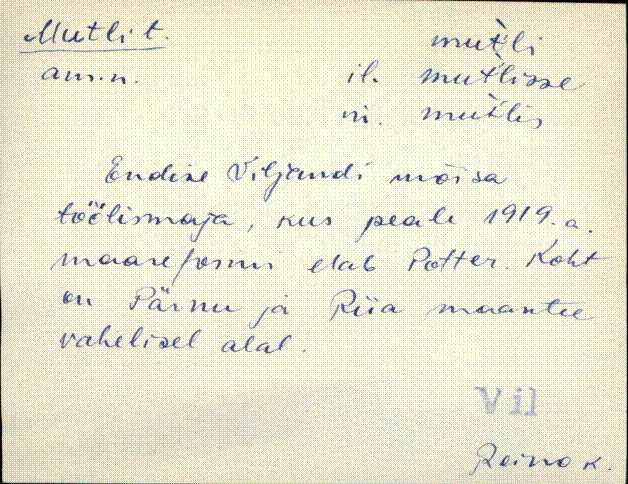 Mutli t. mut̀li
am.n. il. mut̀lisse
in. mut̀lis
Endise Viljandi mõisa
töölismaja, kus peale 1919. a.
maareformi elab Potter. Koht
on Pärnu ja Riia maantee
vahelisel alal.
Vil
Reino K.